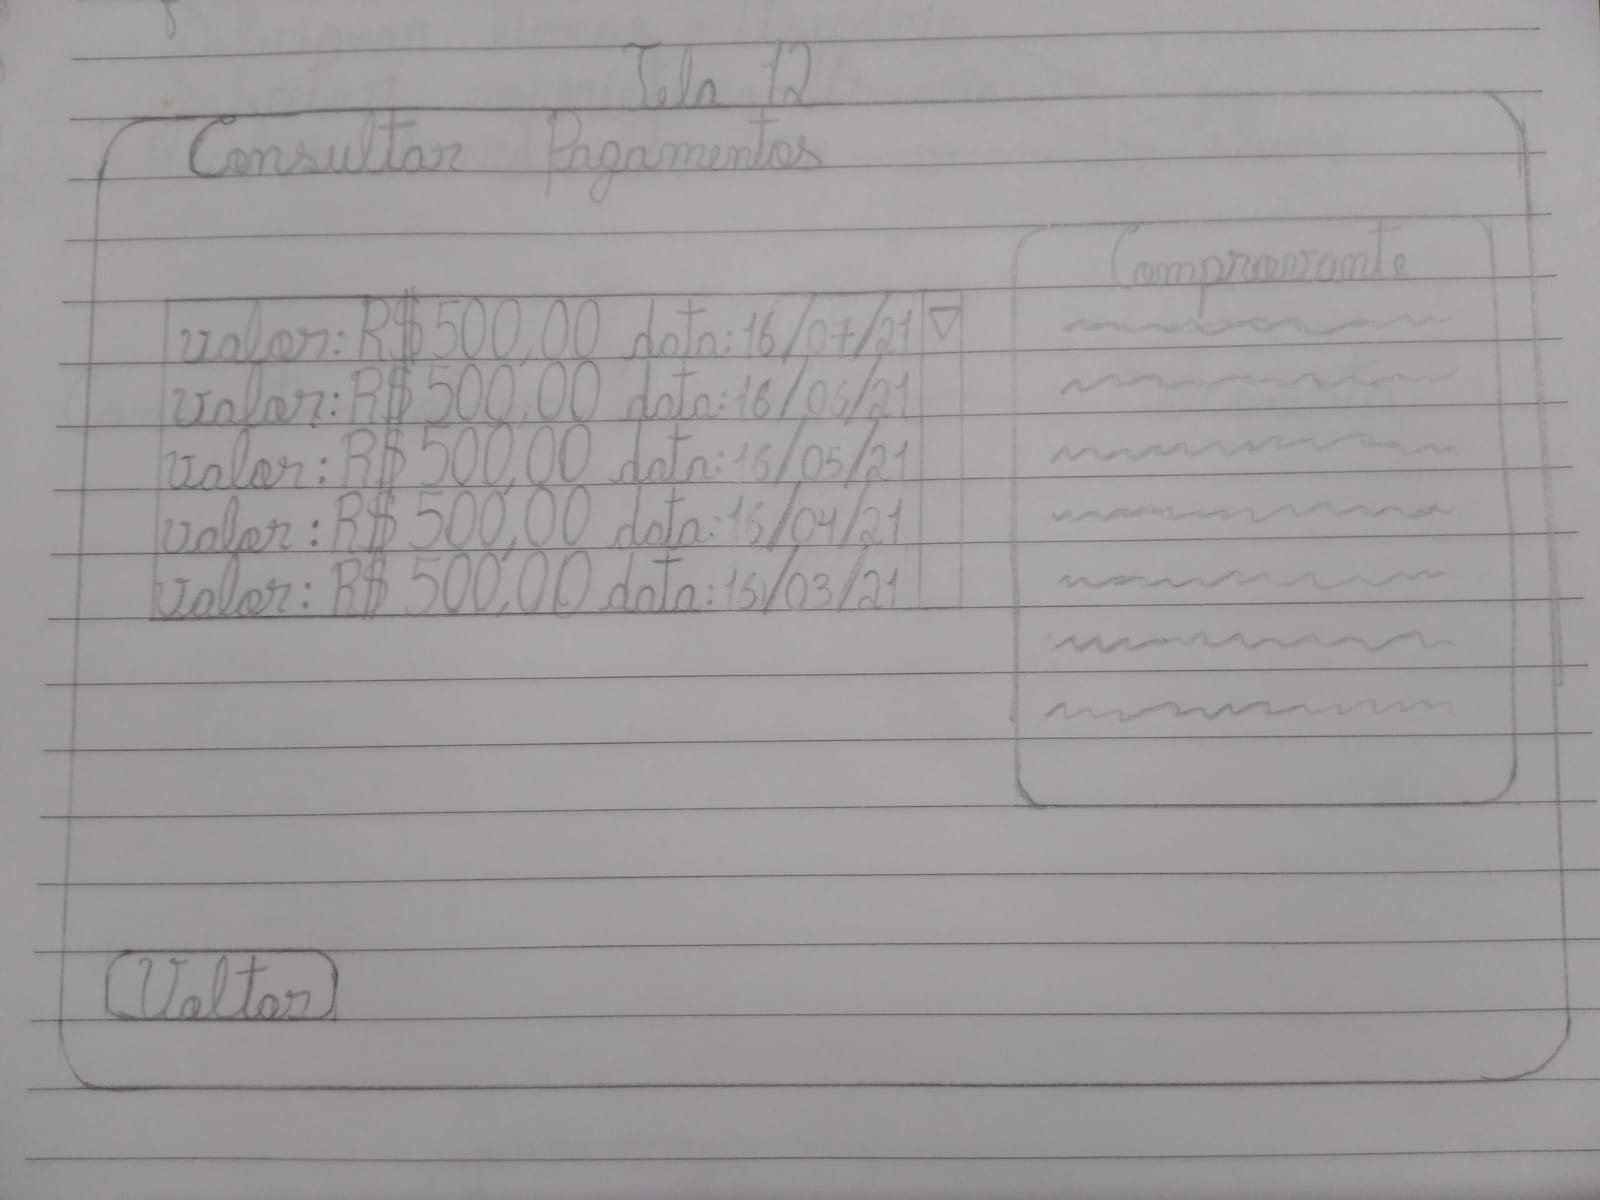 Tela 12
Consultar Pagamentos
Comprovante
valor: R$ 500,00 data: 16/07/21
valor: R$ 500,00 data: 16/06/21
valor: R$ 500,00 data: 15/05/21
valor: R$ 500,00 data: 15/04/21
valor: R$ 500,00 data: 15/03/21
Voltar